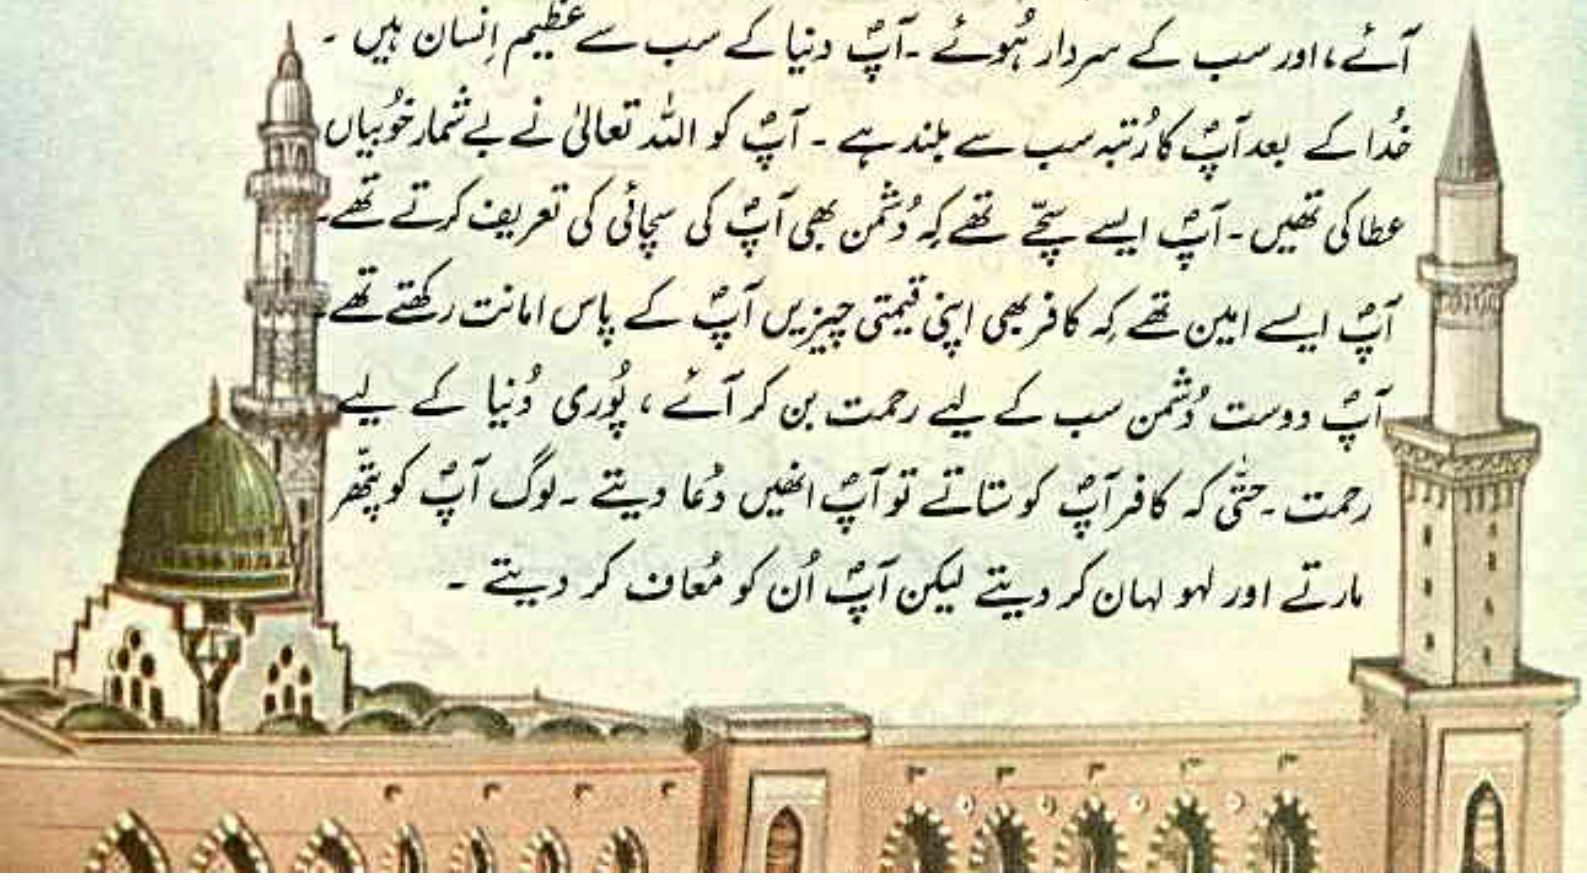 آئے ،اور سب کے سردار ہُوئے ۔آپؐ دنیا کے سب سے عظیم اِنسان ہیں ۔
خُدا کے بعد آپؐ کا رُتبہ سب سے بلند ہے ۔ آپؐ کو اللہ تعالیٰ نے بے شمار خُوبیاں
عطا کی تھیں ۔آپؐ ایسے سچّے تھے کہ دُشمن بھی آپؐ کی سچائی کی تعریف کرتے تھے۔
آپؐ ایسے امین تھے کہ کافر بھی اپنی قیمتی چیزیں آپؐ کے پاس امانت رکھتے تھے۔
آپؐ دوست دُشمن سب کے لیے رحمت بن کر آئے ، پُوری دُنیا کے لیے
رحمت ۔حتّٰی کہ کافر آپؐ کو ستاتے تو آپؐ انھیں دُعا دیتے ۔لوگ آپؐ کو پتّھر
مارتے اور لہو لہان کر دیتے لیکن آپؐ اُن کو مُعاف کر دیتے ۔